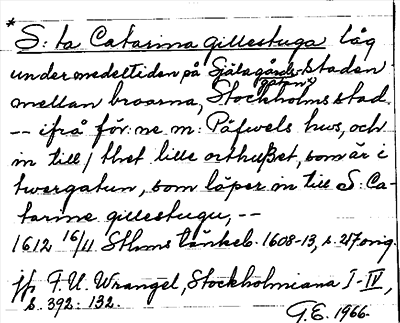 * S:ta Catarina gillestuga låg
under medeltiden på Själagårdsstaden
gatan
mellan broarna, Stockholms stad.
-- ifrå för:ne m: Påfwels hws, och
in till / thet lille orthußet, som är i
twergatun, som löper in till S: Ca-
tarine gillestugu, --
1612 16/11 Sthms tänkeb. 1608-13, s. 217 orig.
jfr F.U. Wrangel, Stockholmiana I-IV,
s. 392: 132.
G.E. 1966.